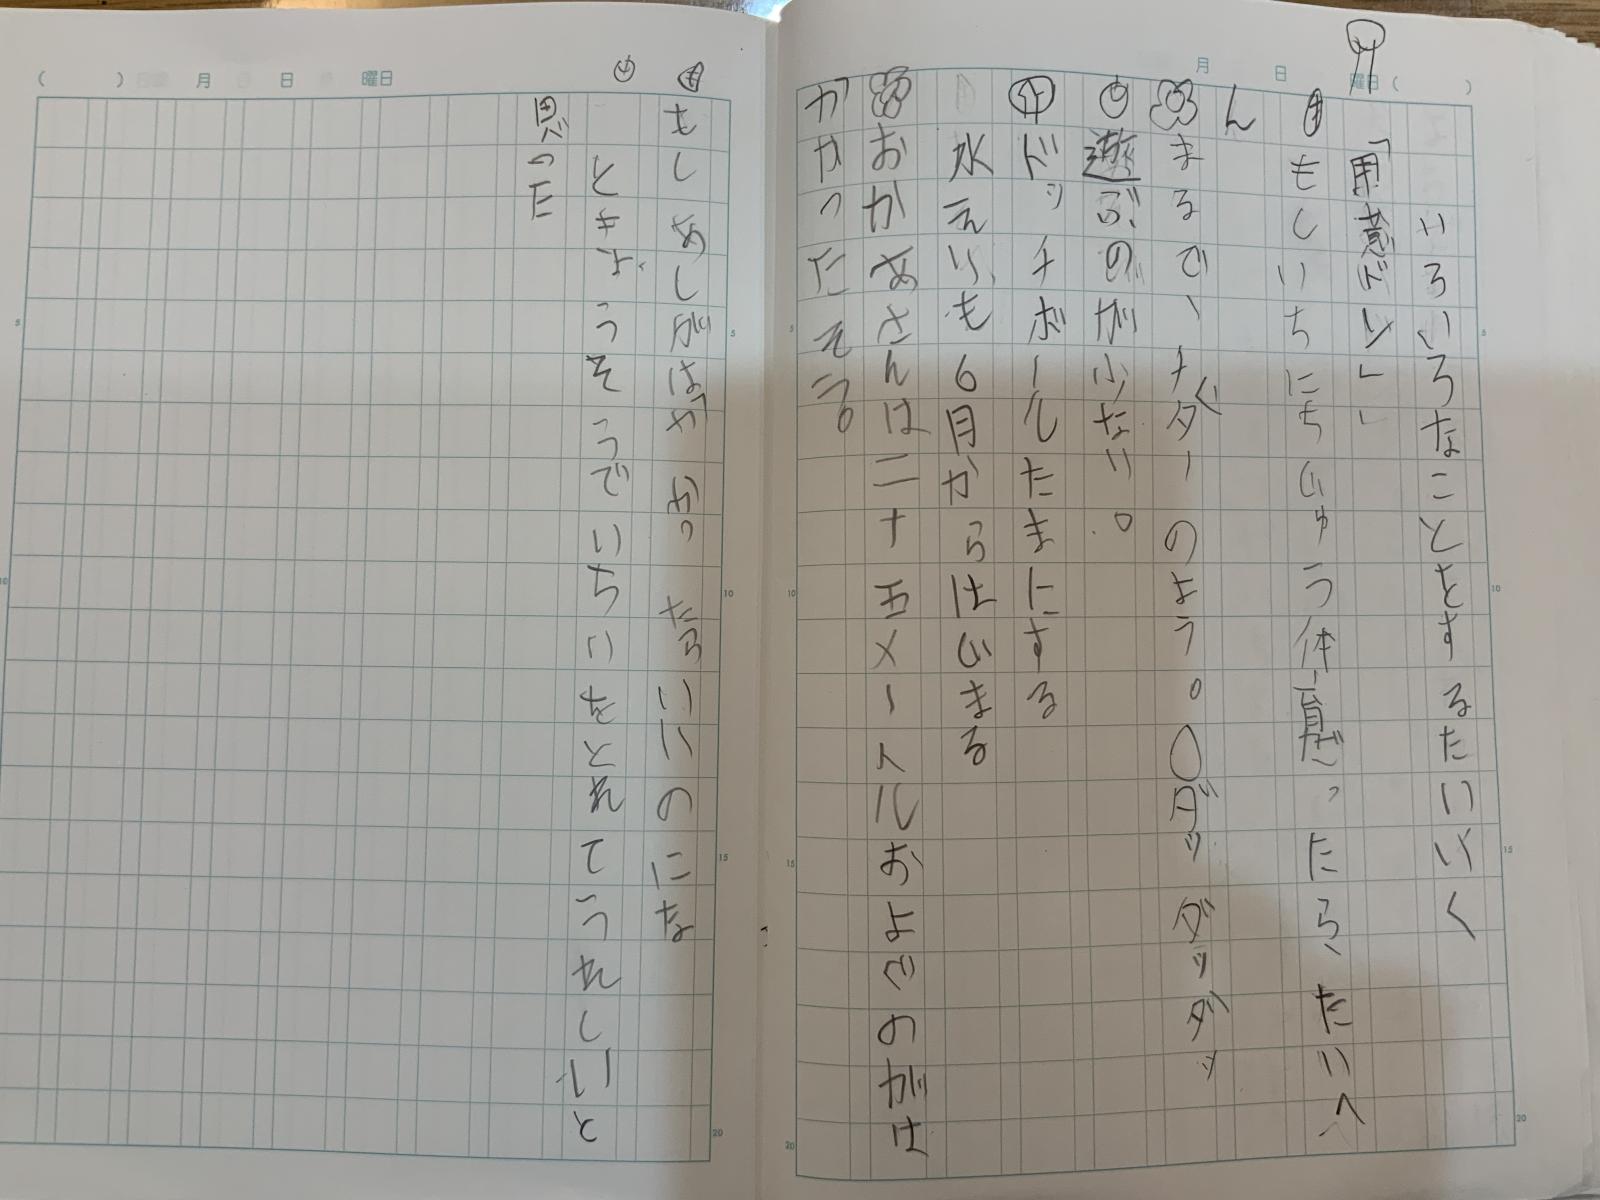 月 日 曜日( )
いろいろなことをするたいいく
「用意ドン」」
もしいちにちじゅう体育だったら、たいへ
ん
まるで、チーターのよう。〇ダッダッダッ
遊ぶのが少ない。
ドッチボールたまにする
水えいも6月からはじまる
おかあさんは二十五メートルおよぐのがは
かかったそう。
( ) 月 日 曜日
もしあしがはやかったらいいのにな
ときょうそうでいちいをとれてうれしいと
思った